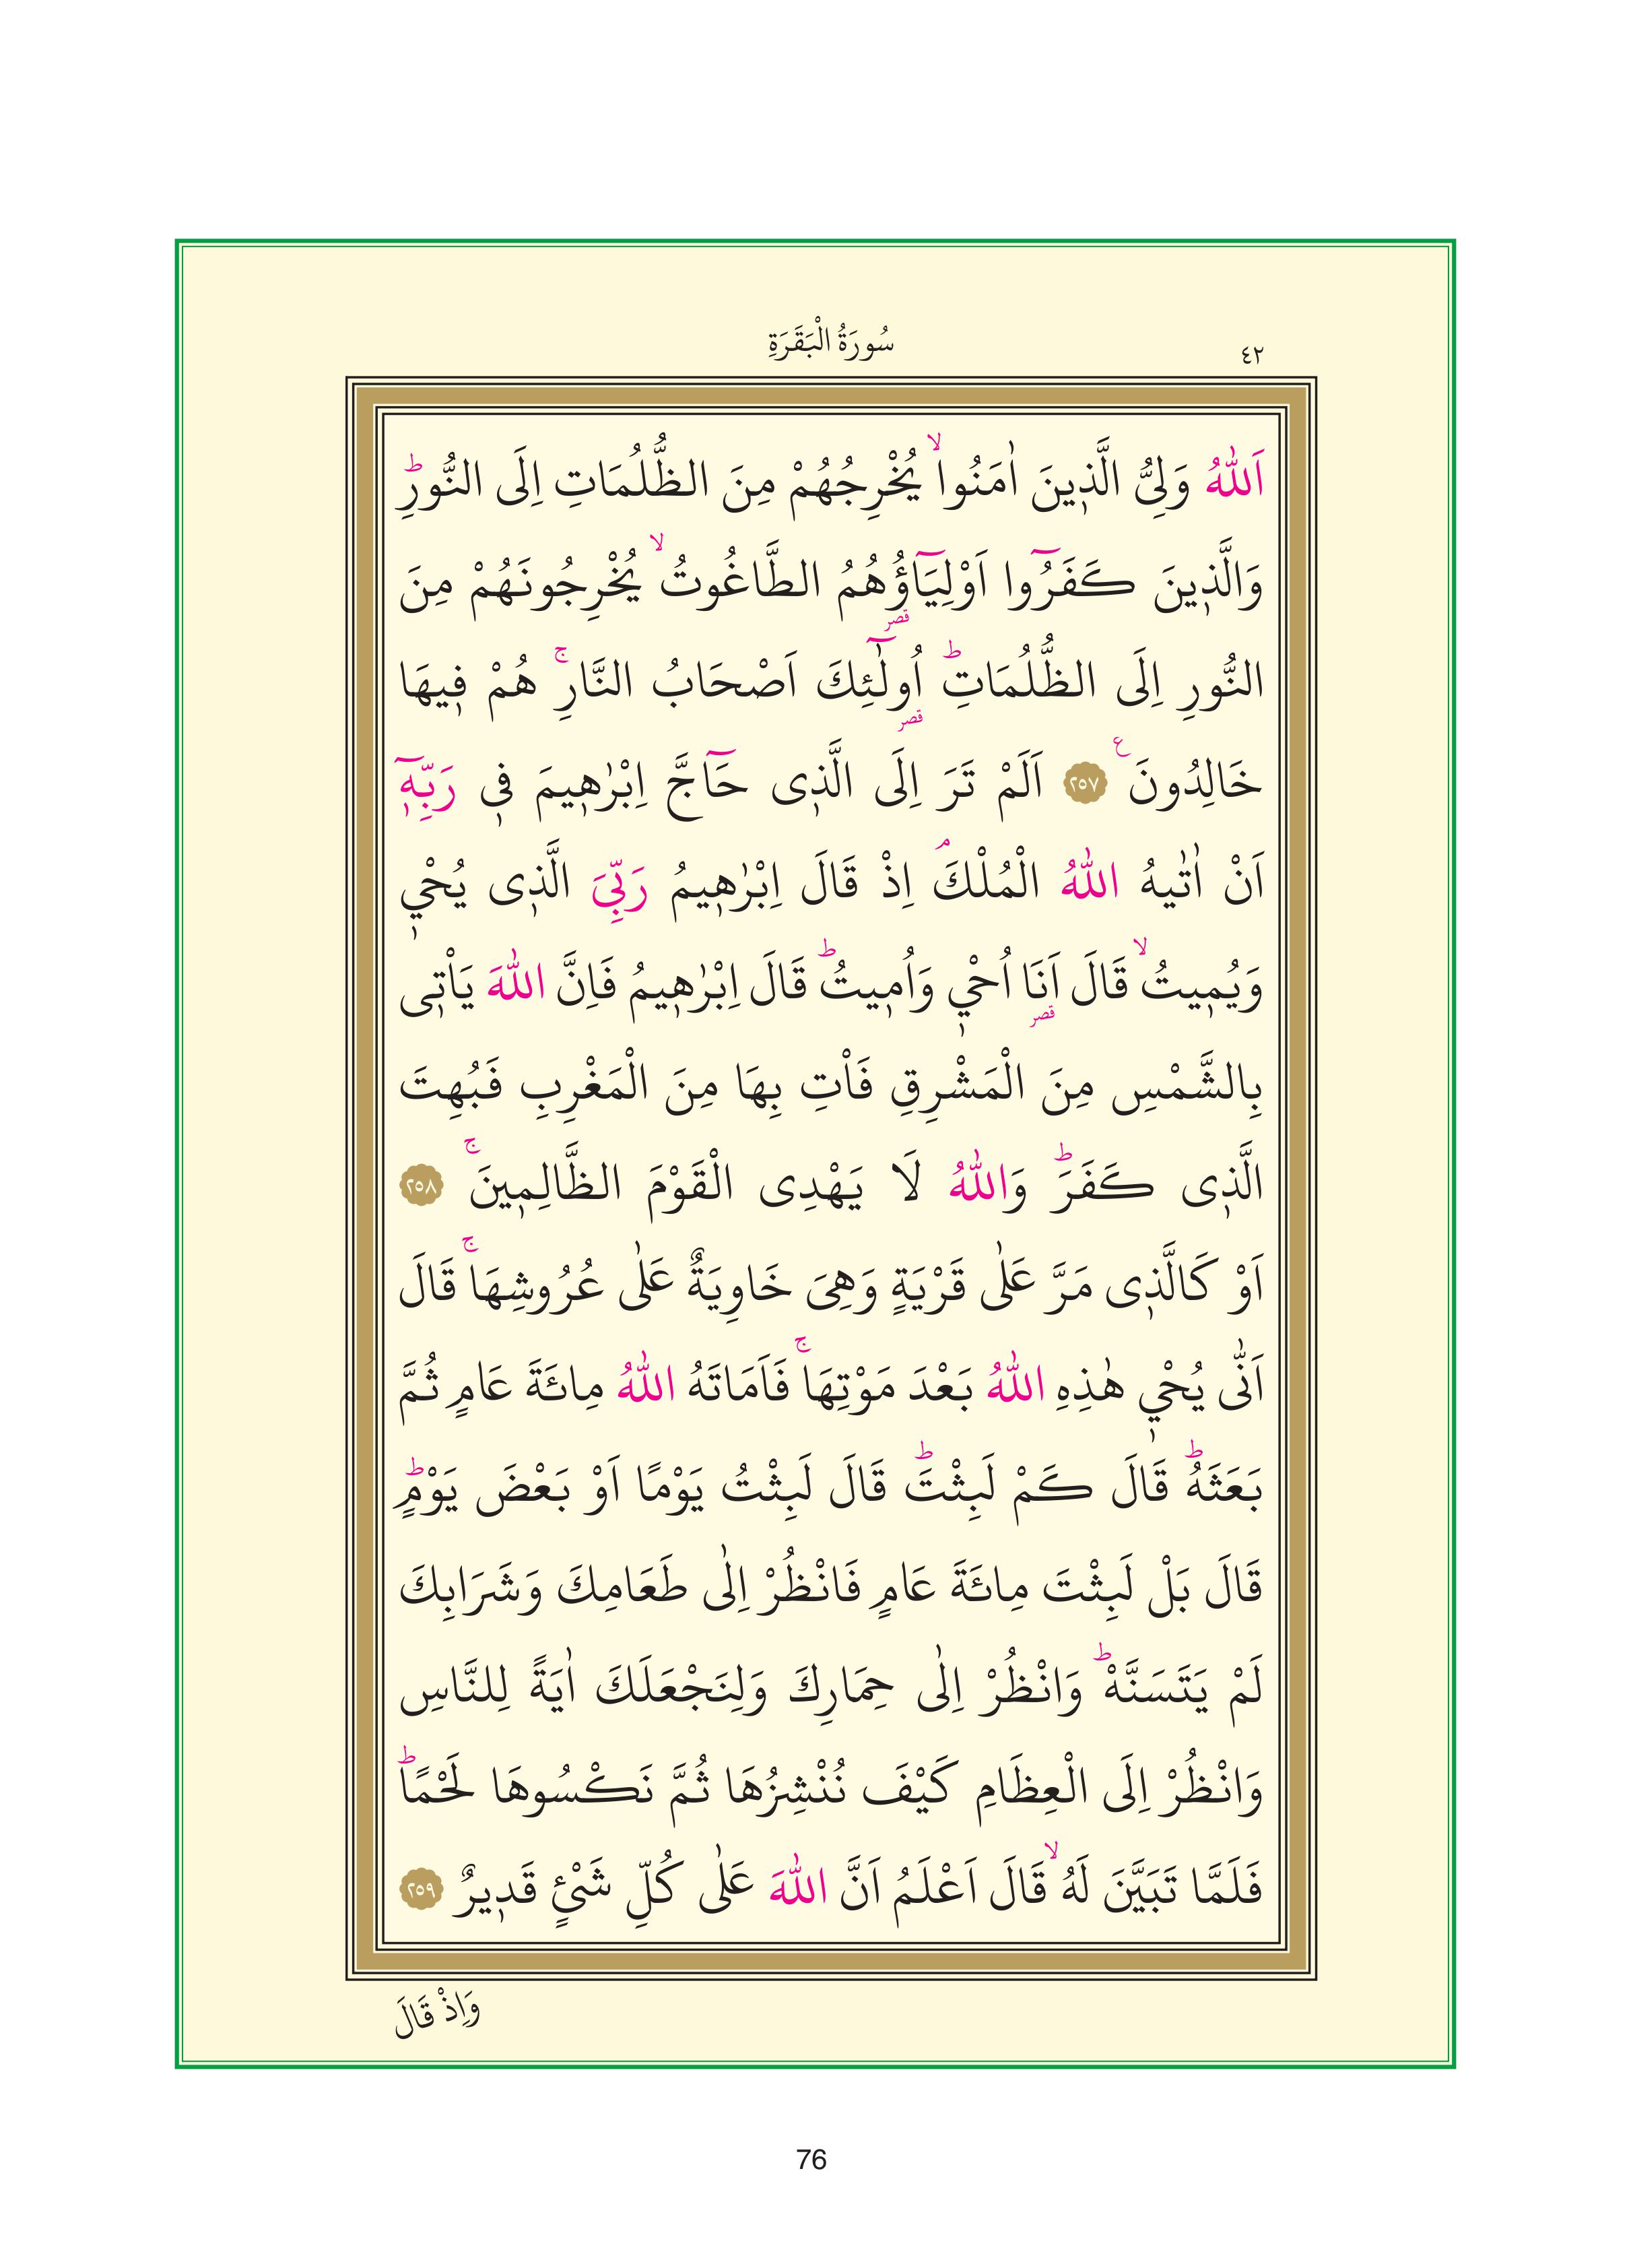 ٤٢
سُورَةُ الْبَقَرَةِ
اَللّٰهُ وَلِيُّ الَّذ۪ينَ اٰمَنُواۙ يُخْرِجُهُمْ مِنَ الظُّلُمَاتِ اِلَى النُّورِۜ
وَالَّذ۪ينَ كَفَرُٓوا اَوْلِيَٓاؤُ۬هُمُ الطَّاغُوتُۙ يُخْرِجُونَهُمْ مِنَ
قصر
النُّورِ اِلَى الظُّلُمَاتِۜ اُو۬لٰٓئِكَ اَصْحَابُ النَّارِۚ هُمْ ف۪يهَا
قصر
خَالِدُونَࣖ ﴿٢٥٧﴾ اَلَمْ تَرَ اِلَى الَّذ۪ى حَٓاجَّ اِبْرٰه۪يمَ ف۪ى رَبِّه۪ٓ
اَنْ اٰتٰيهُ اللّٰهُ الْمُلْكَۢ اِذْ قَالَ اِبْرٰه۪يمُ رَبِّيَ الَّذ۪ى يُحْي۪
وَيُم۪يتُۙ قَالَ اَنَا۬ اُحْي۪ وَاُم۪يتُۜ قَالَ اِبْرٰه۪يمُ فَاِنَّ اللّٰهَ يَاْت۪ى
قصر
بِالشَّمْسِ مِنَ الْمَشْرِقِ فَاْتِ بِهَا مِنَ الْمَغْرِبِ فَبُهِتَ
الَّذ۪ى كَفَرَۜ وَاللّٰهُ لَا يَهْدِى الْقَوْمَ الظَّالِم۪ينَۚ ﴿٢٥٨﴾
اَوْ كَالَّذ۪ى مَرَّ عَلٰى قَرْيَةٍ وَهِىَ خَاوِيَةٌ عَلٰى عُرُوشِهَاۚ قَالَ
اَنّٰى يُحْي۪ هٰذِهِ اللّٰهُ بَعْدَ مَوْتِهَاۚ فَاَمَاتَهُ اللّٰهُ مِائَةَ عَامٍ ثُمَّ
بَعَثَهُۜ قَالَ كَمْ لَبِثْتَۜ قَالَ لَبِثْتُ يَوْمًا اَوْ بَعْضَ يَوْمٍۜ
قَالَ بَلْ لَبِثْتَ مِائَةَ عَامٍ فَانْظُرْ اِلٰى طَعَامِكَ وَشَرَابِكَ
لَمْ يَتَسَنَّهْۜ وَانْظُرْ اِلٰى حِمَارِكَ وَلِنَجْعَلَكَ اٰيَةً لِلنَّاسِ
وَانْظُرْ اِلَى الْعِظَامِ كَيْفَ نُنْشِزُهَا ثُمَّ نَكْسُوهَا لَحْمًاۜ
فَلَمَّا تَبَيَّنَ لَهُۙ قَالَ اَعْلَمُ اَنَّ اللّٰهَ عَلٰى كُلِّ شَىْءٍ قَد۪يرٌ ﴿٢٥٩﴾
وَاِذْ قَالَ
76